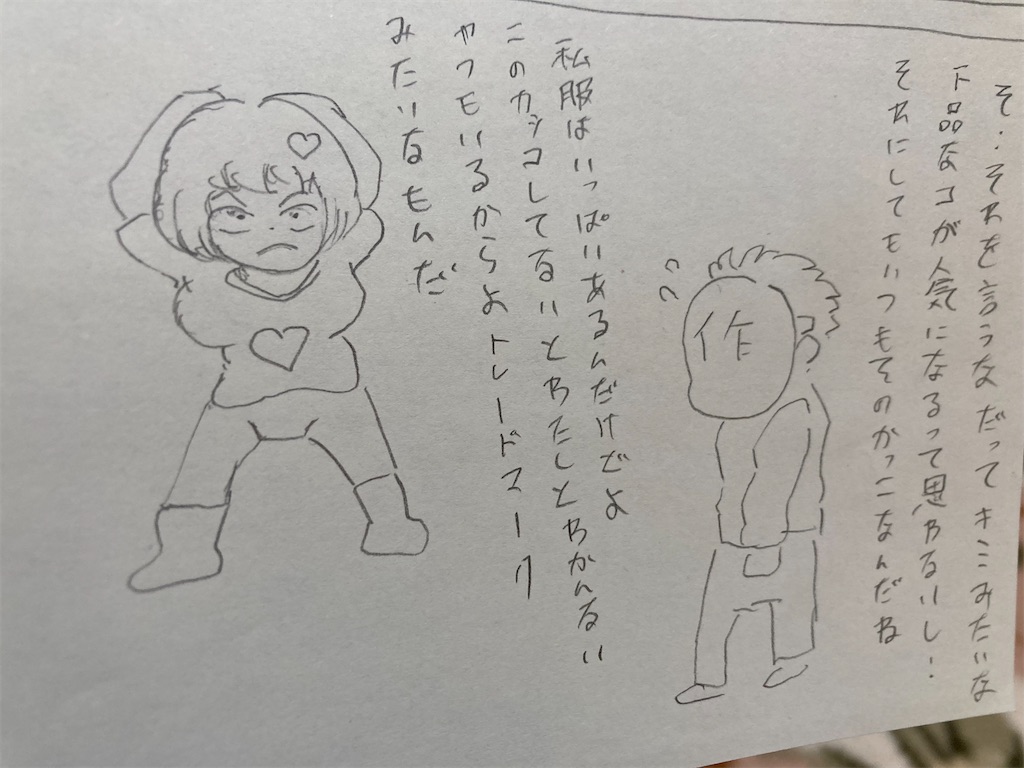 そ・・それを言うな だって キミみたいな
下品なコが人気になるって思わないし・
それにしてもいつもそのかっこなんだね
私服はいっぱいあるんだけどよ
このカッコしてないとわたしとわかんない
やつもいるからよ トレードマーク
みたいなもんだ
作